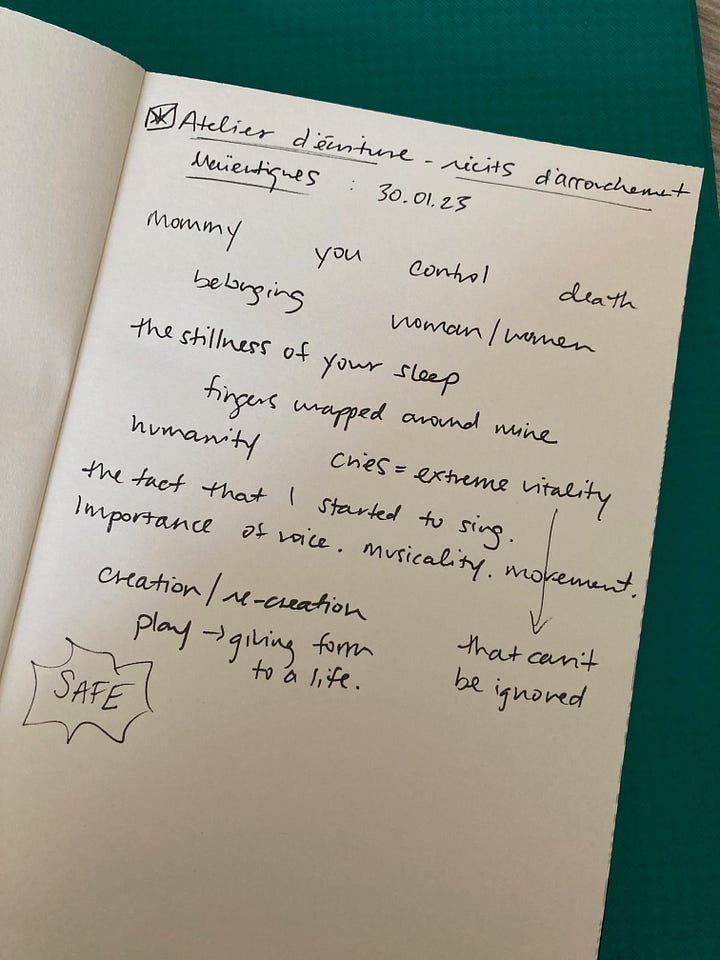 Atelier d'écriture - récits d'arrouchement
Maïeutiques : 30.01.23
mommy you control death
belonging woman/women
the stillness of your sleep
fingers wrapped around mine
humanity cries = extreme vitality
the fact that I started to sing.
Importance of voice. musicality. movement.
creation/re-creation
play → giving form
to a life.
that can't
be ignored
SAFE